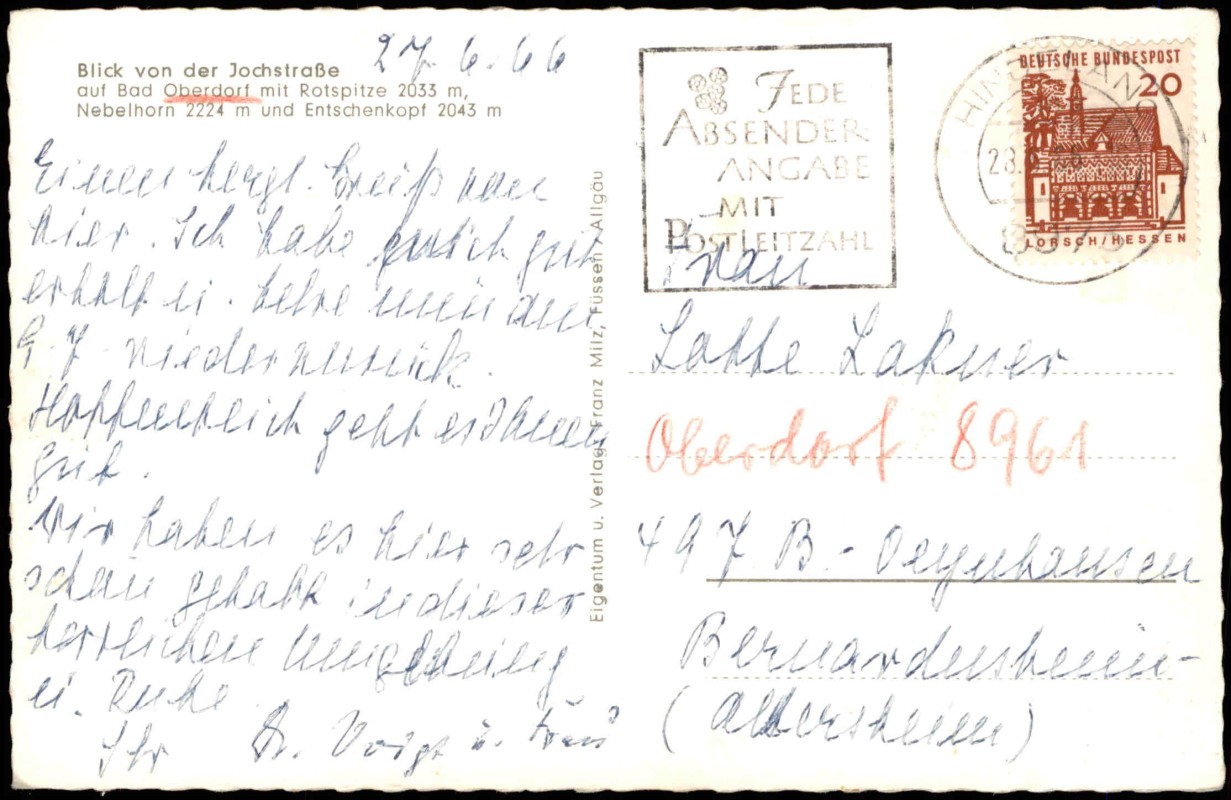 27. 6. 66
Blick von der Jochstraße
auf Bad Oberdorf mit Rotspitze 2033 m,
Nebelhorn 2224 m und Entschenkopf 2043 m
Einen herzl. Gruß von
hier. Ich habe mich gut
erholt u. kehre nun am
9. 7. wieder zurück.
Hoffentlich geht es Ihnen
gut.
Wir haben es hier sehr
schön gehabt in dieser
herrlichen Umgebung
u. Ruhe.
Ihr Dr. Voigt u. Frau
Eigentum u. Verlag Franz Milz, Füssen - Allgäu
JEDE
ABSENDER-
ANGABE
MIT
POSTLEITZAHL
HINDELANG
28.6.66
8973
DEUTSCHE BUNDESPOST
20
LORSCH/HESSEN
Frau
Lotte Lakner
Oberdorf 8961
497 B.- Oeynhausen
Bernardusheim-
(Altersheim)